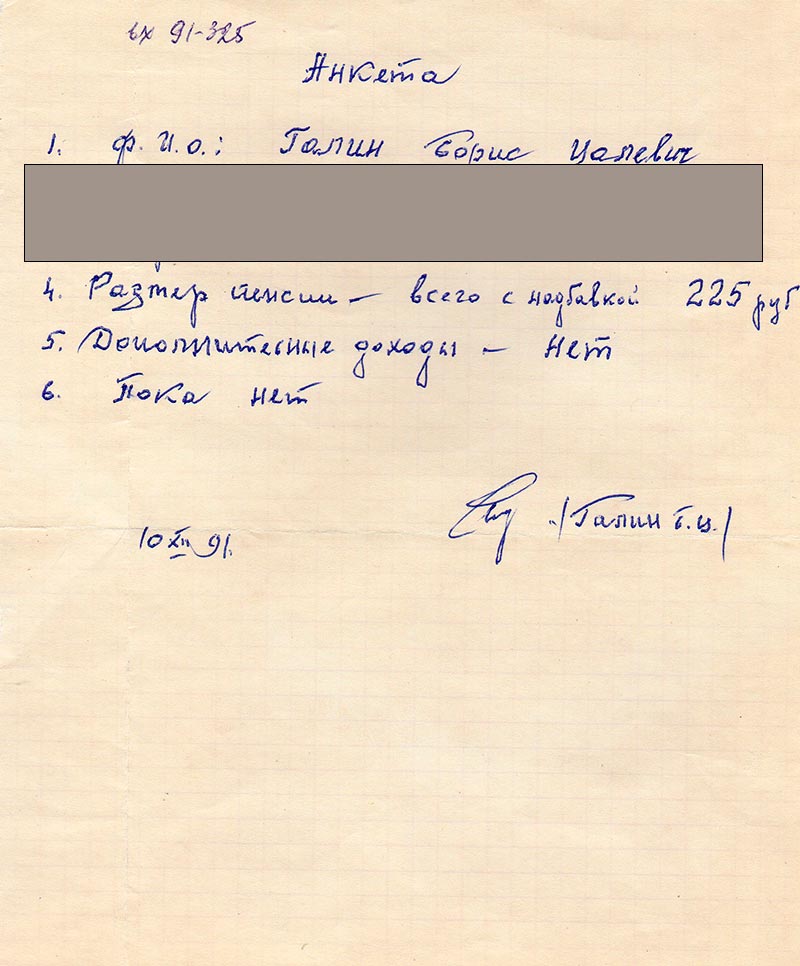 вх 91-325
Анкета
1. Ф.И.О.: Галин Борис Цалевич
4. Размер пенсии – всего с надбавкой 225 руб
5. Дополнительные доходы – Нет
6. Пока нет
/Галин Б.Ц./
10 XII 91.